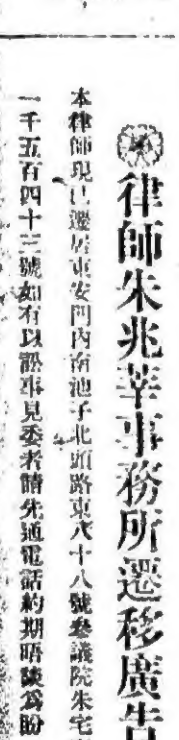 律師朱兆莘事務所遷移廣告
本律師現已遷居東安門內南池子北頭路東六十八號參議院朱宅
一千五百四十三號如有以訟事見委者請先通電話約期晤談為盼